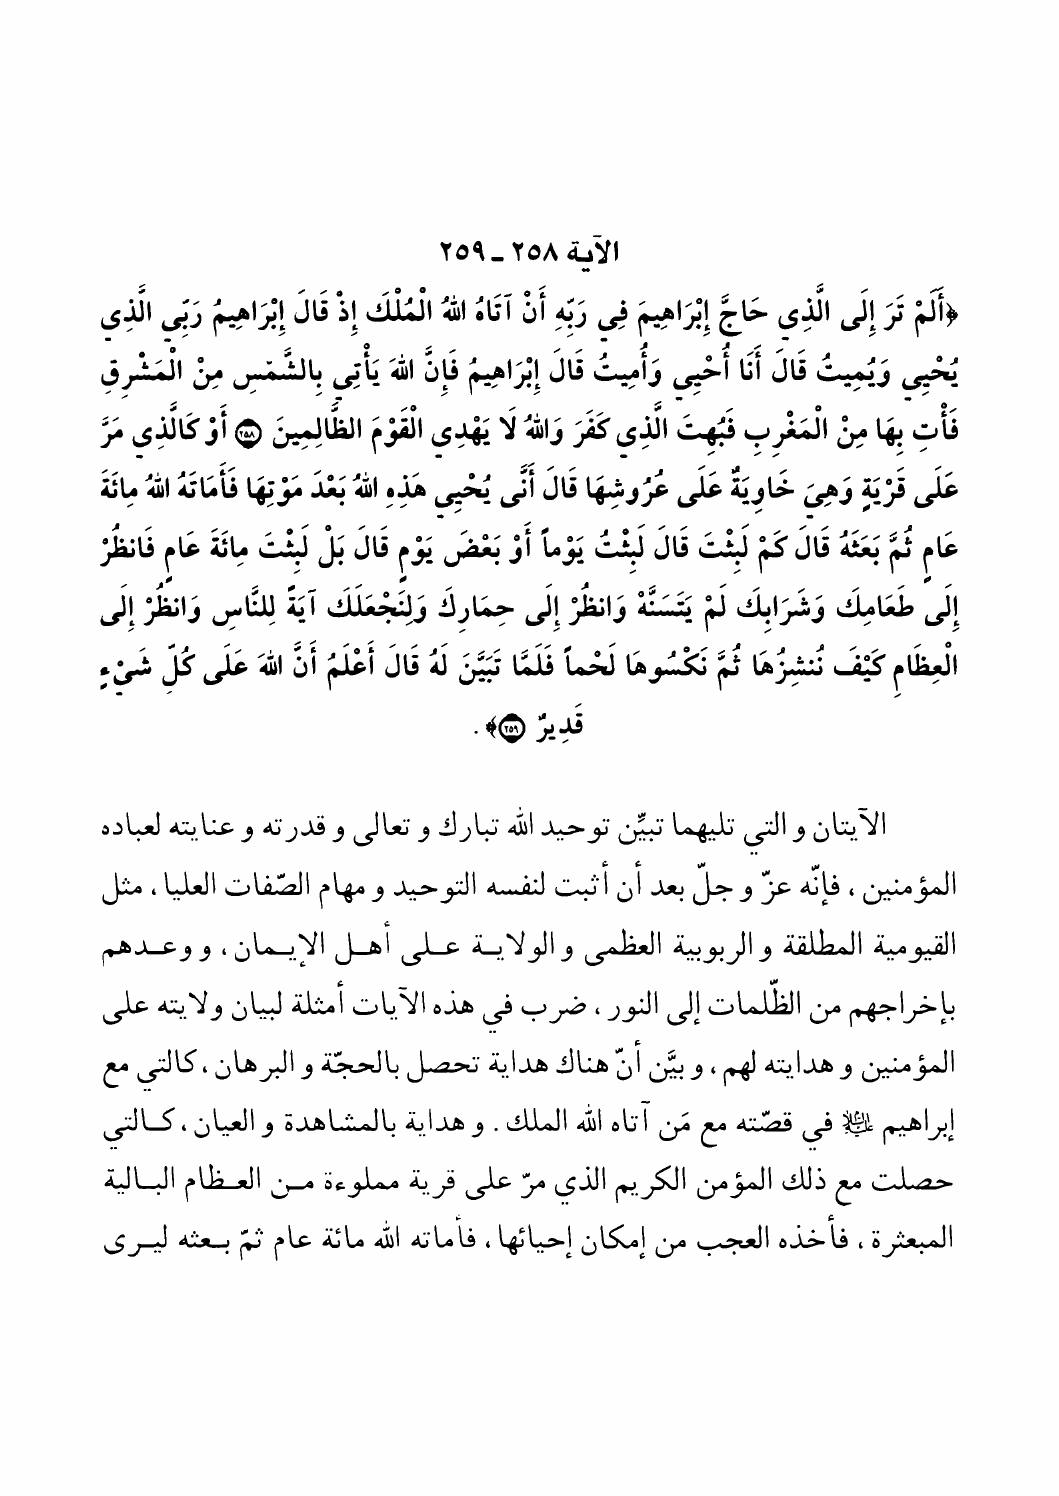 الآية ٢٥٨ ـ ٢٥٩
﴿أَلَمْ تَرَ إِلَى الَّذِي حَاجَّ إِبْرَاهِيمَ فِي رَبِّهِ أَنْ آتَاهُ اللهُ الْمُلْكَ إِذْ قَالَ إِبْرَاهِيمُ رَبِّي الَّذِي
يُحْيِي وَيُمِيتُ قَالَ أَنَا أُحْيِي وَأُمِيتُ قَالَ إِبْرَاهِيمُ فَإِنَّ اللهَ يَأْتِي بِالشَّمْسِ مِنْ الْمَشْرِقِ
فَأْتِ بِهَا مِنْ الْمَغْرِبِ فَبُهِتَ الَّذِي كَفَرَ وَاللهُ لَا يَهْدِي الْقَوْمَ الظَّالِمِينَ ﴿٢٥٨﴾ أَوْ كَالَّذِي مَرَّ
عَلَى قَرْيَةٍ وَهِيَ خَاوِيَةٌ عَلَى عُرُوشِهَا قَالَ أَنَّى يُحْيِي هَذِهِ اللهُ بَعْدَ مَوْتِهَا فَأَمَاتَهُ اللهُ مِائَةَ
عَامٍ ثُمَّ بَعَثَهُ قَالَ كَمْ لَبِثْتَ قَالَ لَبِثْتُ يَوْماً أَوْ بَعْضَ يَوْمٍ قَالَ بَلْ لَبِثْتَ مِائَةَ عَامٍ فَانظُرْ
إِلَى طَعَامِكَ وَشَرَابِكَ لَمْ يَتَسَنَّهْ وَانظُرْ إِلَى حِمَارِكَ وَلِنَجْعَلَكَ آيَةً لِلنَّاسِ وَانظُرْ إِلَى
الْعِظَامِ كَيْفَ نُنشِزُهَا ثُمَّ نَكْسُوهَا لَحْماً فَلَمَّا تَبَيَّنَ لَهُ قَالَ أَعْلَمُ أَنَّ اللهَ عَلَى كُلِّ شَيْءٍ
قَدِيرٌ ﴿٢٥٩﴾﴾ .
الآيتان و التي تليهما تبيِّن توحيد الله تبارك و تعالى و قدرته و عنايته لعباده
المؤمنين ، فإنّه عزّ و جلّ بعد أن أثبت لنفسه التوحيد و مهام الصّفات العليا ، مثل
القيومية المطلقة و الربوبية العظمى و الولايـة عـلـى أهـل الإيـمان ، و وعـدهم
بإخراجهم من الظّلمات إلى النور ، ضرب في هذه الآيات أمثلة لبيان ولايته على
المؤمنين و هدايته لهم ، و بيَّن أنّ هناك هداية تحصل بالحجّة و البرهان ، كالتي مع
إبراهيم ﵇ في قصّته مع مَن آتاه الله الملك . و هداية بالمشاهدة و العيان ، كـالتي
حصلت مع ذلك المؤمن الكريم الذي مرّ على قرية مملوءة مـن العـظام البـالية
المبعثرة ، فأخذه العجب من إمكان إحيائها ، فأماته الله مائة عام ثمّ بـعثه ليـرى